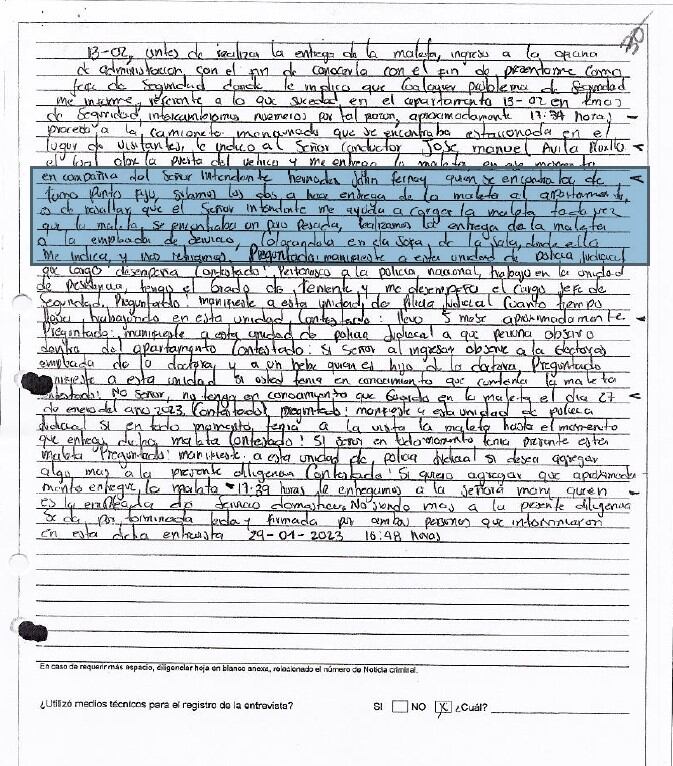 30
13-02, antes de realiza la entrega de la maleta, ingreso a la oficina
de administracion con el fin de conocerla con el fin de presentarme como
jefe de Seguridad donde le implico que cualquier problema de Seguridad
me informe, referente a lo que suceda en el apartamento 13-02 en temas
de Seguridad, intercambiamos numeros por tal razon, aproximadamente 17:34 horas
procedo a la camioneta mencionada que se encontraba estacionada en el
lugar de visitantes, le indico al Señor conductor Jose manuel Avila
el cual abre la puerta del vehiculo y me entrega la maleta en este momento
en compañia del Señor intendante hernandez John fernay quien se encontraba de
turno punto fijo, subimos los dos a hacer entrega de la maleta al apartamento
es de resaltar que el Señor intendante me ayuda a cargar la maleta toda vez
que la maleta, se encontraba un poco pesada, realizamos la entrega de la maleta
a la empleada de servicio, colocandola en el sofa de la sala, donde ella
me indica, y nos retiramos. Preguntado: manifieste a esta unidad de policia judicial
que cargo desempeña Contestado: Pertenesco a la policia nacional, trabajo en la unidad
de presidencia, tengo el Grado de Teniente y me desempeño el cargo Jefe de
Seguridad. Preguntado: manifieste a esta unidad de Policia Judicial cuanto tiempo
lleva trabajando en esta unidad Contestado: llevo 5 mese aproximadamente
Preguntado: manifieste a esta unidad de policia Judicial a que persona observo
dentro del apartamento Contestado: Si Señor al ingresar observe a la
empleada de la doctora y a un bebe quien es hijo de la doctora, Preguntado
manifieste a esta unidad si usted tenia en conocimiento que contenia la maleta
Contestado: No Señor, no tengo en conocimiento que en la maleta el dia 27
de enero del año 2023. Contestado: Preguntado: manifieste a esta unidad de policia
Judicial Si en todo momento, tenia a la vista la maleta hasta el momento
que entrego dicha maleta Contestado: Si Señor en todo momento tenia presente esta
maleta Preguntado: manifieste a esta unidad de policia Judicial si desea agregar
algo mas a la presente diligencia Contestado: Si quiero agregar que aproximada
mente entregue la maleta 17:39 horas, le entregamos a la señora mary quien
es la empleada de servicio domestico, No siendo mas a la presente diligencia
Se da por terminada leida y firmada por ambas personas que intervinieron
en esta dicha entrevista 29-01-2023 16:48 horas
En caso de requerir más espacio, diligenciar hoja en blanco anexa, relacionado el número de Noticia criminal.
¿Utilizó medios técnicos para el registro de la entrevista? SI NO X ¿Cuál?